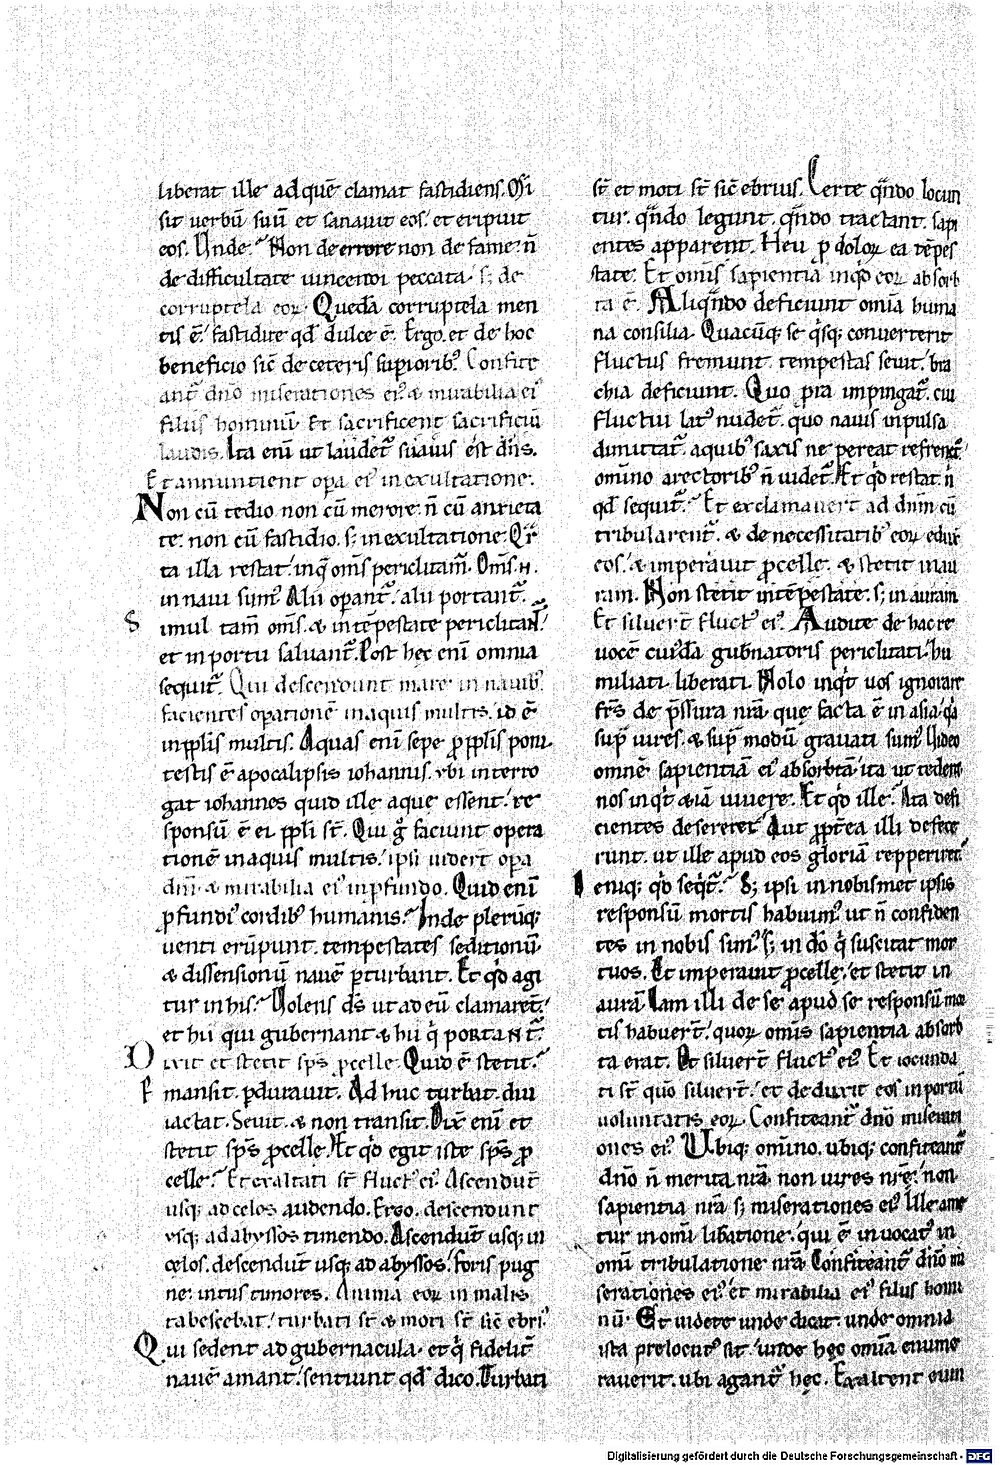 liberat ille ad quē clamat fastidiens. Mi
sit uerbū suū et sanauit eos. et eripuit
eos. Unde. Non de errore non de fame. n̄
de difficultate uincendi peccata. s; de
corruptela eoꝝ. Quedā corruptela men
tis ē. fastidire qd̄ dulce ē. Ergo. et de hoc
beneficio sic̄ de ceteris supioribꝰ. Confite
ant̄ dn̄o miserationes eiꝰ. & mirabilia eiꝰ
filiis hominū. Et sacrificent sacrificiū
laudis. Ita enī ut laudet̄ suauis est dn̄s.
Et annuntient opa eiꝰ in exultatione.
Non cū tedio non cū merore. n̄ cū anxieta
te. non cū fastidio. s; in exultatione.
ta illa restat. inq̄ om̄s periclitam̄. Om̄s .n.
in naui sumꝰ. Alii opant̄. alii portant̄.
Simul tam̄ om̄s. & in tēpestate periclitan̄t.
et in portu saluant̄. Post hęc enī omnia
sequit̄. Qui descendunt mare in nauibꝰ.
facientes opationē in aquis multis. id ē
in pplis multis. Aquas enī sepe p pplis poni.
testis ē apocalipsis iohannis. ubi interro
gat iohannes quid ille aque essent. re
sponsū ē ei ppli st̄. Qui g̊ faciunt opera
tionē in aquis multis. ipsi uider̄t opa
dn̄i & mirabilia eiꝰ in pfundo. Quid enī
pfundiꝰ cordibꝰ humanis. Inde plerūq;
uenti erūpunt. tempestates seditionū.
& dissensionū nauē pturbant. Et qd̊ agi
tur in his. Uolens ds̄ ut ad eū clamaret̄.
et hii qui gubernant & hii q̇ portant̄.
Dixit et stetit sps̄ pcelle. Quid ē stetit.
Pmansit. pdurauit. Ad huc turbat. diu
iactat. Seuit. & non transit. Dix̄ enī et
stetit sps̄ pcelle. Et qd̊ egit iste sps̄ p
celle. Et exaltati st̄ fluctꝰ eiꝰ. Ascendūt
usq; ad celos audendo. Ergo. descendunt
usq; ad abyssos timendo. Ascendūt usq; in
cęlos. descendūt usq; ad abyssos. foris pug
ne. intus timores. Anima eoꝝ in malis
tabescebat. turbati st̄ & moti st̄ sic̄ ebriꝰ.
Qui sedent ad gubernacula. et q̇ fidelit̄
nauē amant. sentiunt qd̄ dico. Turbati
st̄ et moti st̄ sic̄ ebrius. Certe qn̄do locun
tur. qn̄do legunt. qn̄do tractant. sapi
entes apparent. Heu p doloꝝ ea tēpes
state. Et om̄is sapientia inqd̊ eoꝝ absorb
ta ē. Aliqn̄do deficiunt omīa huma
na consilia. Quacūq; se q̇sq; conuerterit
fluctus fremunt. tempestas seuit. bra
chia deficiunt. Quo pra impingat̄. cui
fluctui latꝰ nudet̄. quo nauis inpulsa
dimittat̄. a quibꝰ saxis ne pereat refrenet̄
omīno a rectoribꝰ n̄ uidet̄. Et qd̊ restat. n̄
qd̄ sequit̄. Et exclamauer̄t ad dnm̄ cū
tribularent̄. & de necessitatibꝰ eoꝝ eduxit
eos. & imperauit pcelle. & stetit in au
ram. Non stetit in tēpestate. s; in auram.
Et siluer̄t fluctꝰ eiꝰ. Audite de hac re
uocē cuiꝰdā gubnatoris periclitati. hu
miliati. liberati. Nolo inqt̊ uos ignorare
frs̄ de p̄ssura nr̄a. quę facta ē in asia. qa
sup̄ uires. & sup̄ modū grauati sumꝰ. Uideo
omnē sapientiā eiꝰ absorbtā. ita ut tederet
nos inqt̊ & iā uiuere. Et qd̊ ille. Ita defi
cientes desereret. Aut ppt̄ea illi defece
runt. ut ille apud eos gloriā repperiret.
Deniq; qd̊ seqt̄. S; ipsi in nobismet ipsis
responsū mortis habuimꝰ. ut n̄ confiden
tes in nobis simꝰ. s; in dō q̇ suscitat mor
tuos. Et imperauit pcellę. et stetit in
aurā. Iam illi de se apud se responsū mor
tis habuer̄t. quoꝝ om̄is sapientia absorb
ta erat. Et siluer̄t fluctꝰ eiꝰ. Et iocunda
ti st̄ quō siluer̄t. et deduxit eos in portū
uoluntatis eoꝝ. Confiteant̄ dn̄o miserati
ones eiꝰ. Ubiq; omīno. ubiq; confiteant̄
dn̄o n̄ merita nr̄a. non uires nr̄ę. non
sapientia nr̄a s; miserationes eiꝰ. Ille ame
tur in omī libatione. qui ē inuocatꝰ in
omī tribulatione nr̄a. Confiteant̄ dn̄o mi
serationes eiꝰ. et mirabilia eiꝰ filiis homi
nū. Et uidete unde dicat. unde omnia
ista prelocutꝰ sit. unde hęc omīa enume
rauerit. ubi agant̄ hęc. Exaltent eum
Digitalisierung gefördert durch die Deutsche Forschungsgemeinschaft - DFG